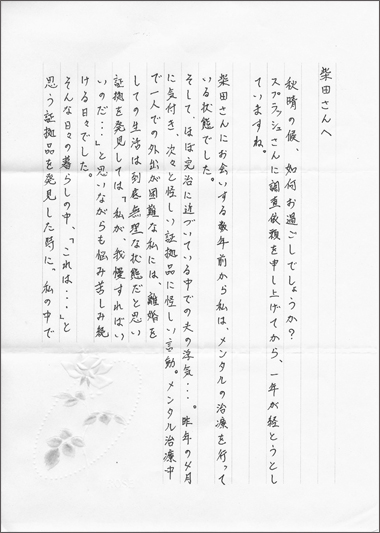 柴田さんへ
秋晴の候、如何お過ごしでしょうか?
スプラッシュさんに調査依頼を申し上げてから、一年が経とうとし
ていますね。
柴田さんにお会いする数年前から私は、メンタルの治療を行って
いる状態でした。
そして、ほぼ完治に近づいている中での夫の浮気・・・。昨年の4月
に気付き、次々と怪しい証拠品に怪しい言動。メンタル治療中
で一人での外出が困難な私には、離婚を
しての生活は到底無理な状態だと思い
証拠を発見しては「私が、我慢すればい
いのだ・・・」と思いながらも悩み苦しみ続
ける日々でした。
そんな日々の暮らしの中、「これは・・・」と
思う証拠品を発見した時に。私の中で